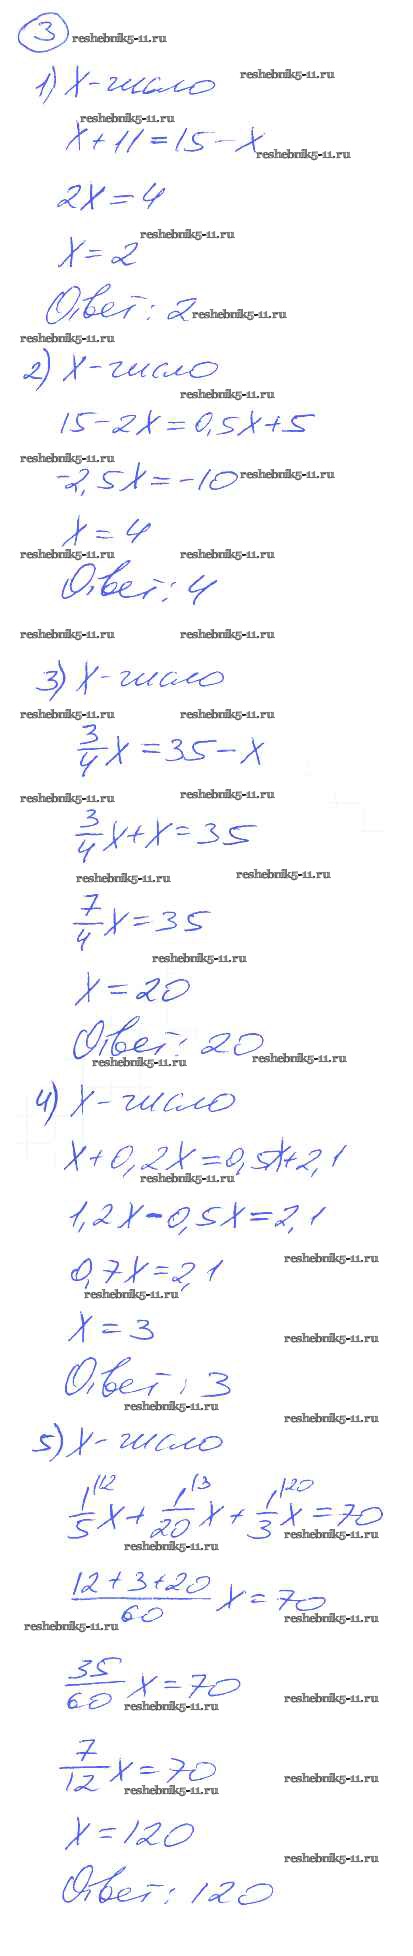 3 reshebnik5-11.ru
reshebnik5-11.ru
1) x - число
reshebnik5-11.ru
x + 11 = 15 - x
reshebnik5-11.ru
2x = 4
reshebnik5-11.ru
x = 2
Ответ: 2 reshebnik5-11.ru
reshebnik5-11.ru
2) x - число
reshebnik5-11.ru
15 - 2x = 0,5x + 5
reshebnik5-11.ru
-2,5x = -10 reshebnik5-11.ru
x = 4
reshebnik5-11.ru reshebnik5-11.ru
Ответ: 4
reshebnik5-11.ru reshebnik5-11.ru
3) x - число
reshebnik5-11.ru reshebnik5-11.ru
3/4 x = 35 - x
reshebnik5-11.ru reshebnik5-11.ru
3/4 x + x = 35
reshebnik5-11.ru reshebnik5-11.ru
7/4 x = 35
reshebnik5-11.ru
x = 20
Ответ: 20
reshebnik5-11.ru reshebnik5-11.ru
4) x - число
x + 0,2x = 0,5x + 2,1
reshebnik5-11.ru
1,2x - 0,5x = 2,1
reshebnik5-11.ru
0,7x = 2,1
reshebnik5-11.ru
x = 3
reshebnik5-11.ru
Ответ: 3
reshebnik5-11.ru
reshebnik5-11.ru
5) x - число
1/5 |12 x + 1/20 |3 x + 1/3 |20 x = 70
reshebnik5-11.ru
reshebnik5-11.ru
12 + 3 + 20/60 x = 70
reshebnik5-11.ru
reshebnik5-11.ru
35/60 x = 70
reshebnik5-11.ru
reshebnik5-11.ru
7/12 x = 70
reshebnik5-11.ru
reshebnik5-11.ru
x = 120
reshebnik5-11.ru
Ответ: 120